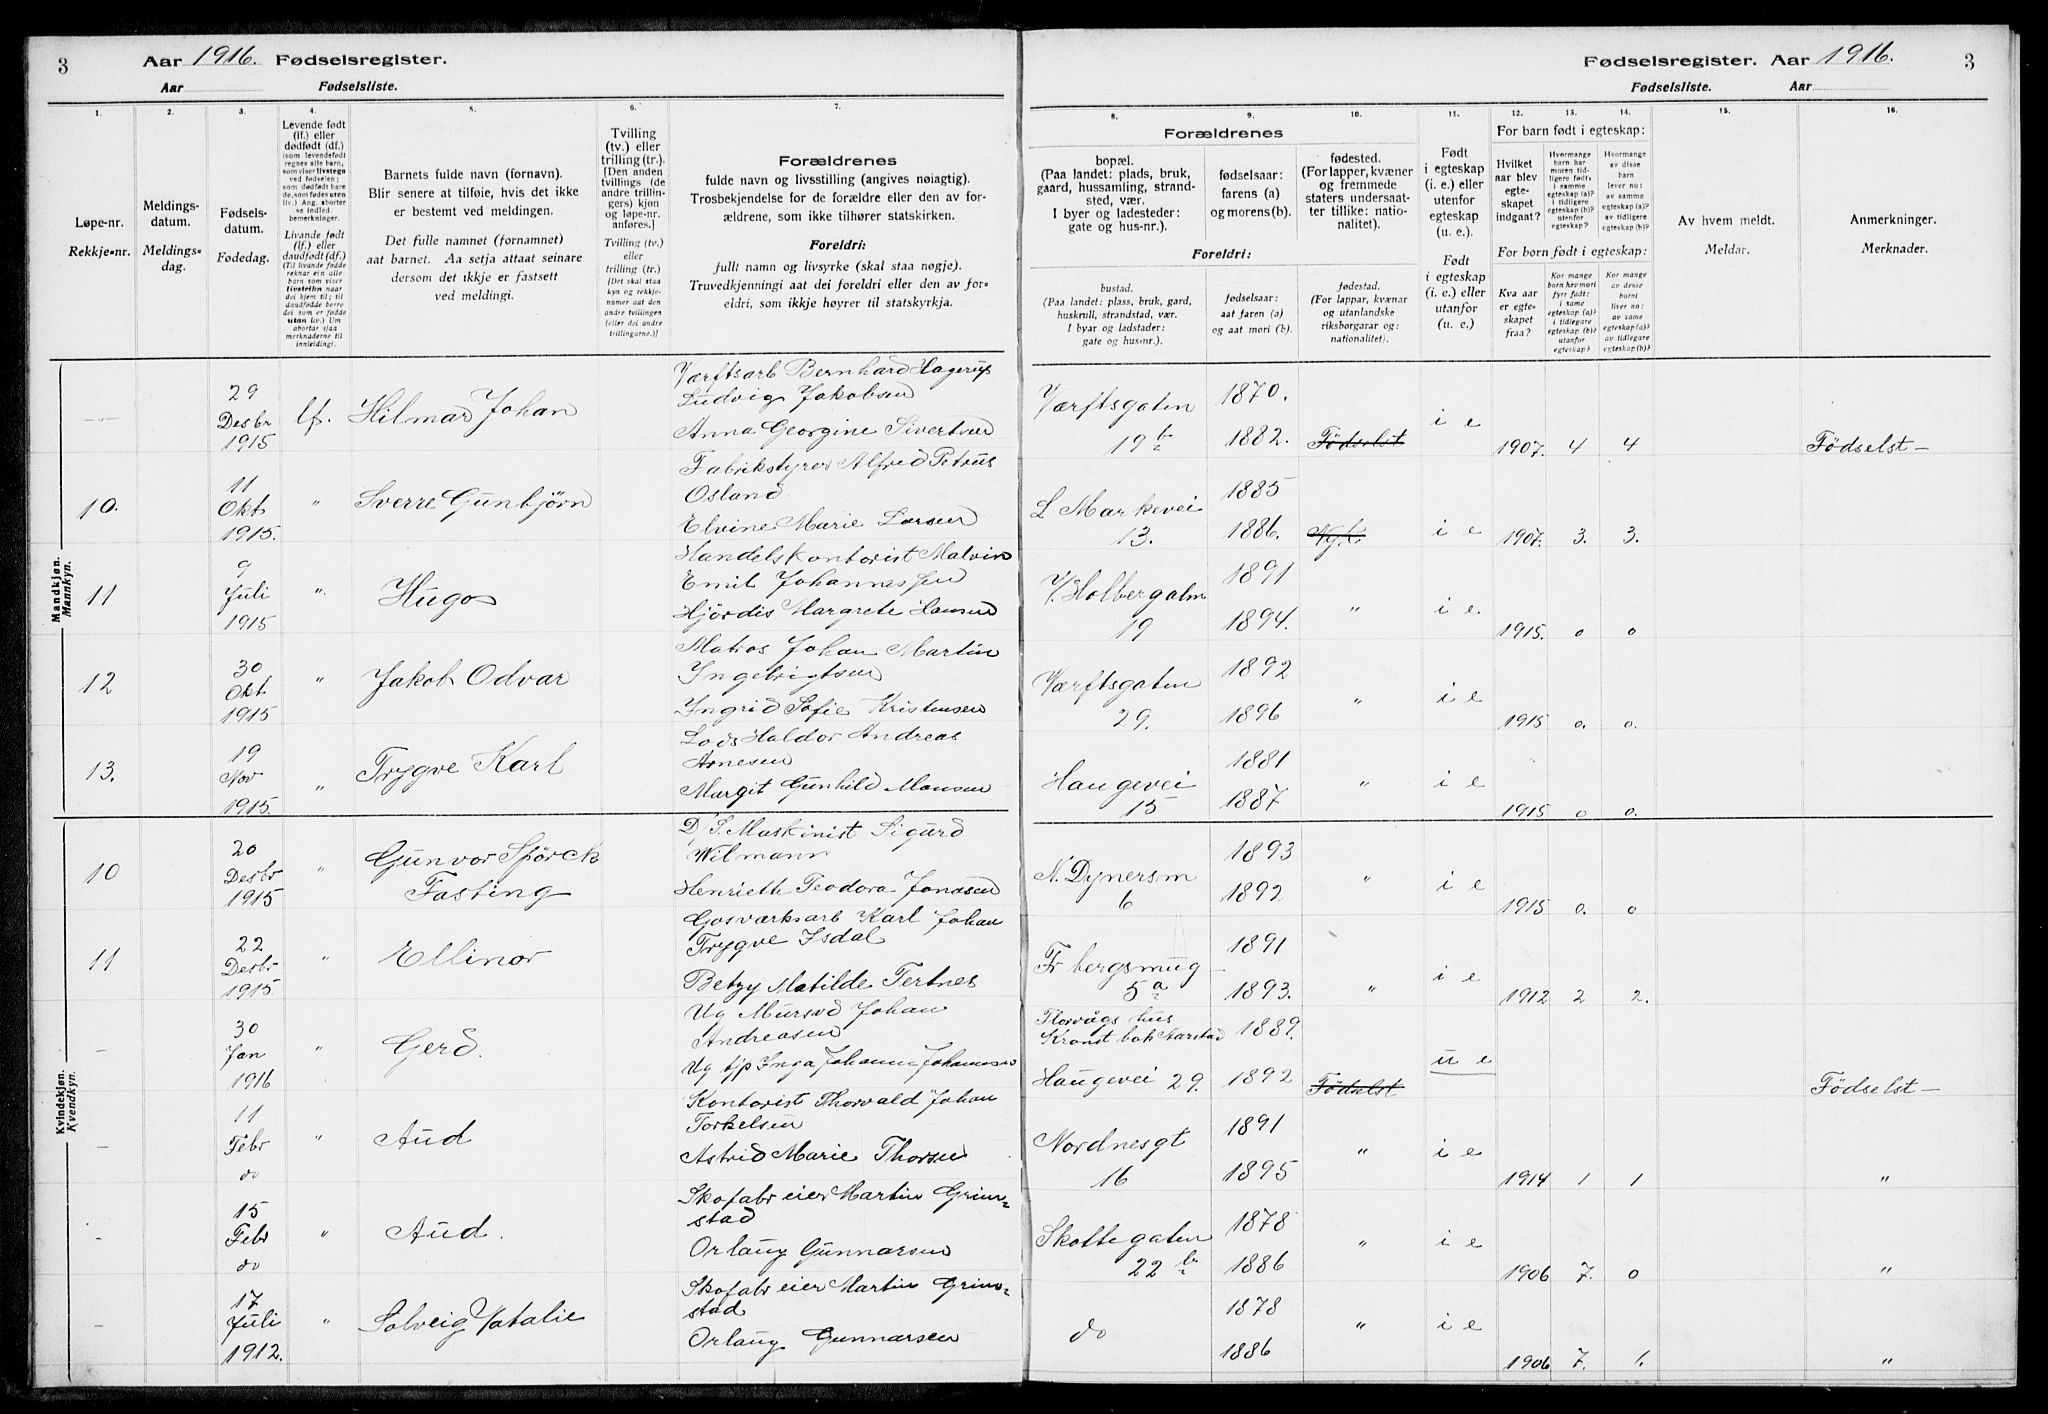 3 Aar 1916. Fødselsregister.
Aar Fødselsliste.
1. 2. 3. 4. 5. 6. 7.
Løpe-nr.
Rekkje-nr.
Meldings-
datum.
Meldings-
dag.
Fødsels-
datum.
Fødedag.
Levende født
(lf.) eller
dødfødt (df.)
(som levendefødt
regnes alle barn,
som viser livstegn
ved fødselen;
som dødfødt bare
de, som fødes uten
liv.) Ang. aborter
se indled.
bemerkninger.
Livande født
(lf.) eller
daudfødt (df.)
(Til livande fødde
reknar ein alle
barn som viser
livsteikn naar
dei kjem til; til
daudfødde berre
dei som er fødde
utan liv.) Um
abortar sjaa
merknaderne til
innleidingi.
Barnets fulde navn (fornavn).
Blir senere at tilføie, hvis det ikke
er bestemt ved meldingen.
Det fulle namnet (fornamnet)
aat barnet. Aa setja attaat seinare
dersom det ikkje er fastsett
ved meldingi.
Tvilling
(tv.) eller
trilling (tr.).
[Den anden
tvillings (de
andre trillin-
gers) kjøn
og løpe-nr.
anføres.]
Tvilling (tv.)
eller
trilling (tr.)
[Det skal staa
kyn og rekkje-
numer aat den
andre tvillingen
(eller dei andre
trillingarne.)]
Forældrenes
fulde navn og livsstilling (angives nøiagtig).
Trosbekjendelse for de forældre eller den av for-
ældrene, som ikke tilhører statskirken.
Foreldri:
fullt namn og livsyrke (skal staa nøgje).
Truvedkjenningi aat dei foreldri eller den av for-
eldri, som ikkje høyrer til statskyrkja.
Mandkjøn.
Mannkyn.
29
Desbr
1915
lf. Hilmar Johan
Værftsarb Bernhard Hagerup
Ludvig Jakobsen
Anna Georgine Sivertsen
10.
11
Okt
1915.
" Sverre Gunbjørn
Fabrikstyrer Alfred Petrus
Osland
Elvine Marie Larsen
11
9
Juli
1915
" Hugo
Handelskontorist Malvin
Emil Johannessen
Hjördis Margrete Hansen
12
30
Okt
1915
" Jakob Odvar
Matros Johan Martin
Ingebrigtsen
Ingrid Sofie Kristensen
13.
19
Nov
1915.
" Trygve Karl
Lods Haldor Andreas
Arnesen
Margit Gunhild Monsen
Kvindekjøn.
Kvendkyn.
10
20
Desbr
1915
" Gunvor Spörck
Fasting
D/S. Maskinist Sigurd
Wilmann
Henriette Teodora Jonassen
11
22
Desbr
1915
" Ellinor
Gasværksarb Karl Johan
Trygve Isdal
Betzy Matilde Tertnes
-
30
Jan
1916
" Gerd.
Ug Mursvd Johan
Andreasen
Ug tjp Inga Johanne Johannsen
-
11
Febr
do
" Aud
Kontorist Thorvald Johan
Torkelsen
Astrid Marie Thorsen
-
15
Febr
do
" Aud.
Skofabr eier Martin Grim=
stad
Orlaug Gunnarsen
-
17
Juli
1912.
" Solveig Natalie
Skofabr eier Martin Grim=
stad
Orlaug Gunnarsen
Fødselsregister. Aar 1916. 3
Fødselsliste. Aar
8. 9. 10. 11. 12. 13. 14. 15. 16.
Forældrenes
bopæl.
(Paa landet: plads, bruk,
gaard, hussamling, strand-
sted, vær.
I byer og ladesteder:
gate og hus-nr.).
fødselsaar:
farens (a)
og morens (b).
fødested.
(For lapper, kvæner
og fremmede
staters undersaat-
ter tillike: natio-
nalitet).
Foreldri:
bustad.
(Paa landet: plass, bruk, gard,
huskrull, strandstad, vær.
I byar og ladstader:
gate og hus-nr.).
fødselsaar:
aat faren (a)
og aat mori (b).
fødestad.
(For lappar, kvænar
og utanlandske
riksborgarar og:
nationalitet).
Født
i egteskap
(i. e.) eller
utenfor
egteskap
(u. e.).
Født
i egteskap
(i. e.) eller
utanfor
(u. e.)
For barn født i egteskap:
Hvilket
aar blev
egte-
skapet
indgaat?
Hvormange
barn har
moren tid-
ligere født,
i samme
egteskap (a)?
i tidligere
egteskap (b)?
utenfor
egteskap?
Hvormange
av disse
barn
lever nu:
av samme
egteskap (a)?
av tidligere
egteskap (b)?
For born født i egteskap:
Kva aar
er egte-
skapet
fraa?
Kor mange
barn hev mori
fyrr født:
i same
egteskap (a)?
i tidlegare
egteskap (b)?
utanfor
egteskap?
Kor mange
av desse
borni
liver no:
av same
egteskap (a)?
av tidlegare
egteskap (b)?
Av hvem meldt.
Meldar.
Anmerkninger.
Merknader.
Værftsgaten
19 b
1870.
1882.
Födselst
i e
1907. 4 4
Födselst-
L Markevei
13.
1885
1886.
Ngk.
i e
1907. 3. 3.
V. Holbergalm
19
1891
1894.
"
i e.
1915. 0 0
Værftsgaten
29.
1892
1896
"
i e
1915 0. 0.
Haugevei
15
1881
1887
"
i e
1915 0 0.
N. Dynersm
6
1893
1892
"
i e
1915 0. 0
Fr bergsmug
5 a
1891
1893.
"
i e
1912 2 2.
Florvågs hus
Kronst bak Aarstad
Haugevei 29.
1889.
1892
Födselst
u e
Födselst-
Nordnesgt
16
1891
1895
"
i e
1914 1 1
"
Skottegaten
22 b
1878
1886
"
i e
1906 7. 0
"
do
1878
1886
"
i e
1906 7. 6.
"